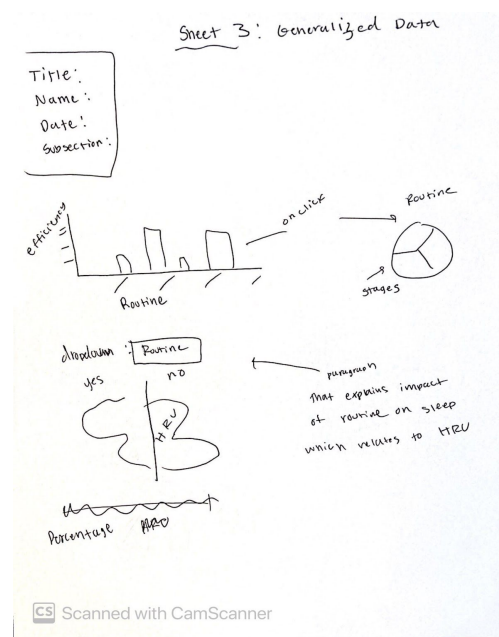 Sheet 3: Generalized Data
Title:
Name:
Date:
Subsection:
efficiency
Routine
on click
Routine
stages
dropdown : Routine
yes no
HRV
paragraph
that explains impact
of routine on sleep
which relates to HRV
Percentage
CS Scanned with CamScanner